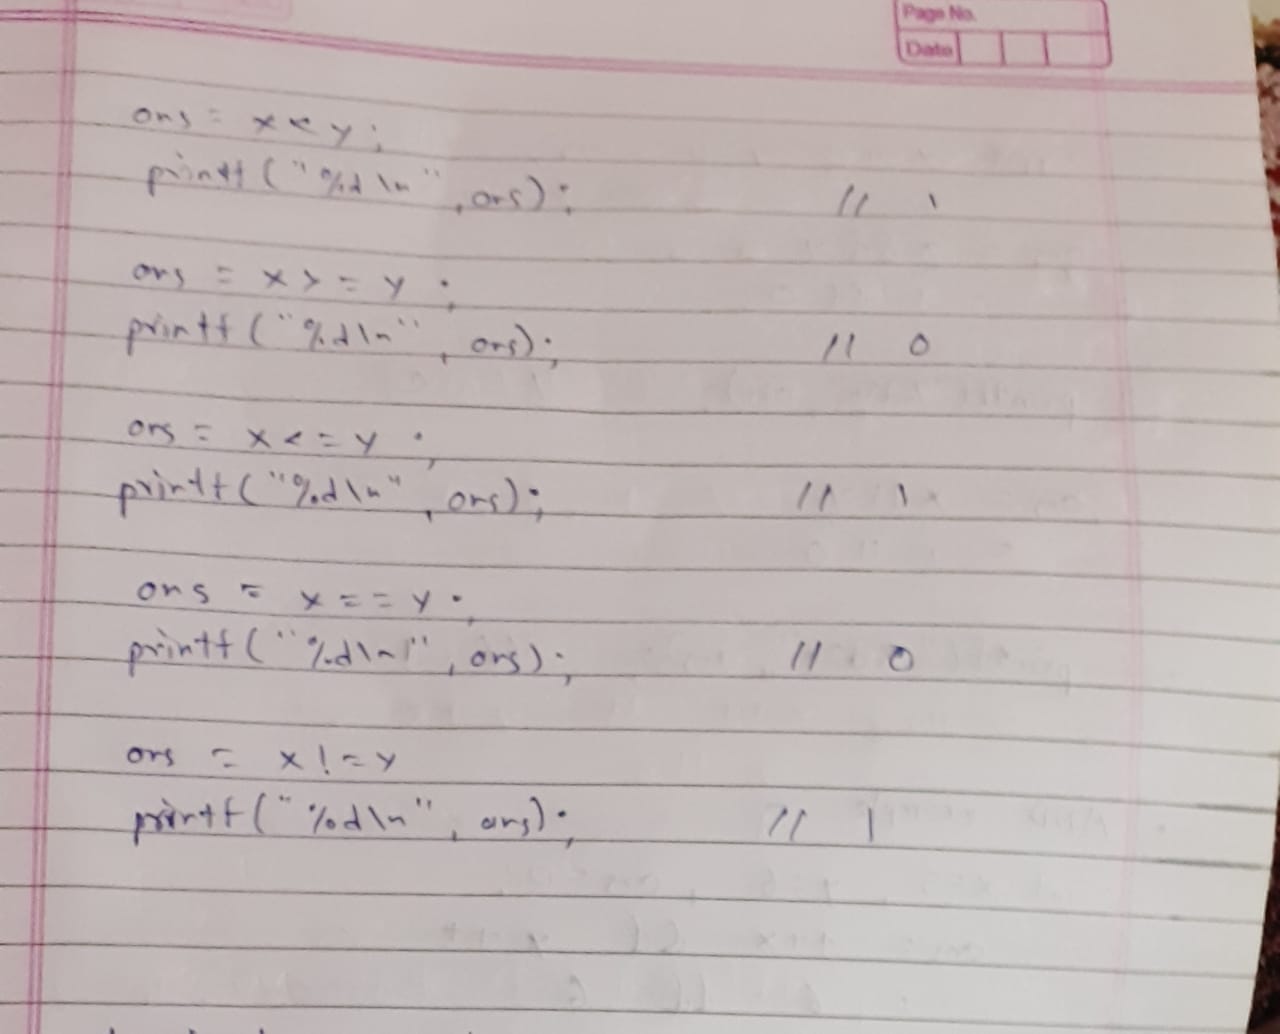 Page No.
Date
ans = x < y ;
printf ( "%d \n" , ans) ;
// 1
ans = x > = y ;
printf ( "%d\n" , ans) ;
// 0
ans = x < = y ;
printf ( "%d\n" , ans) ;
// 1
ans = x = = y ;
printf ( "%d\n" , ans) ;
// 0
ans = x ! = y
printf ( "%d\n" , ans) ;
// 1